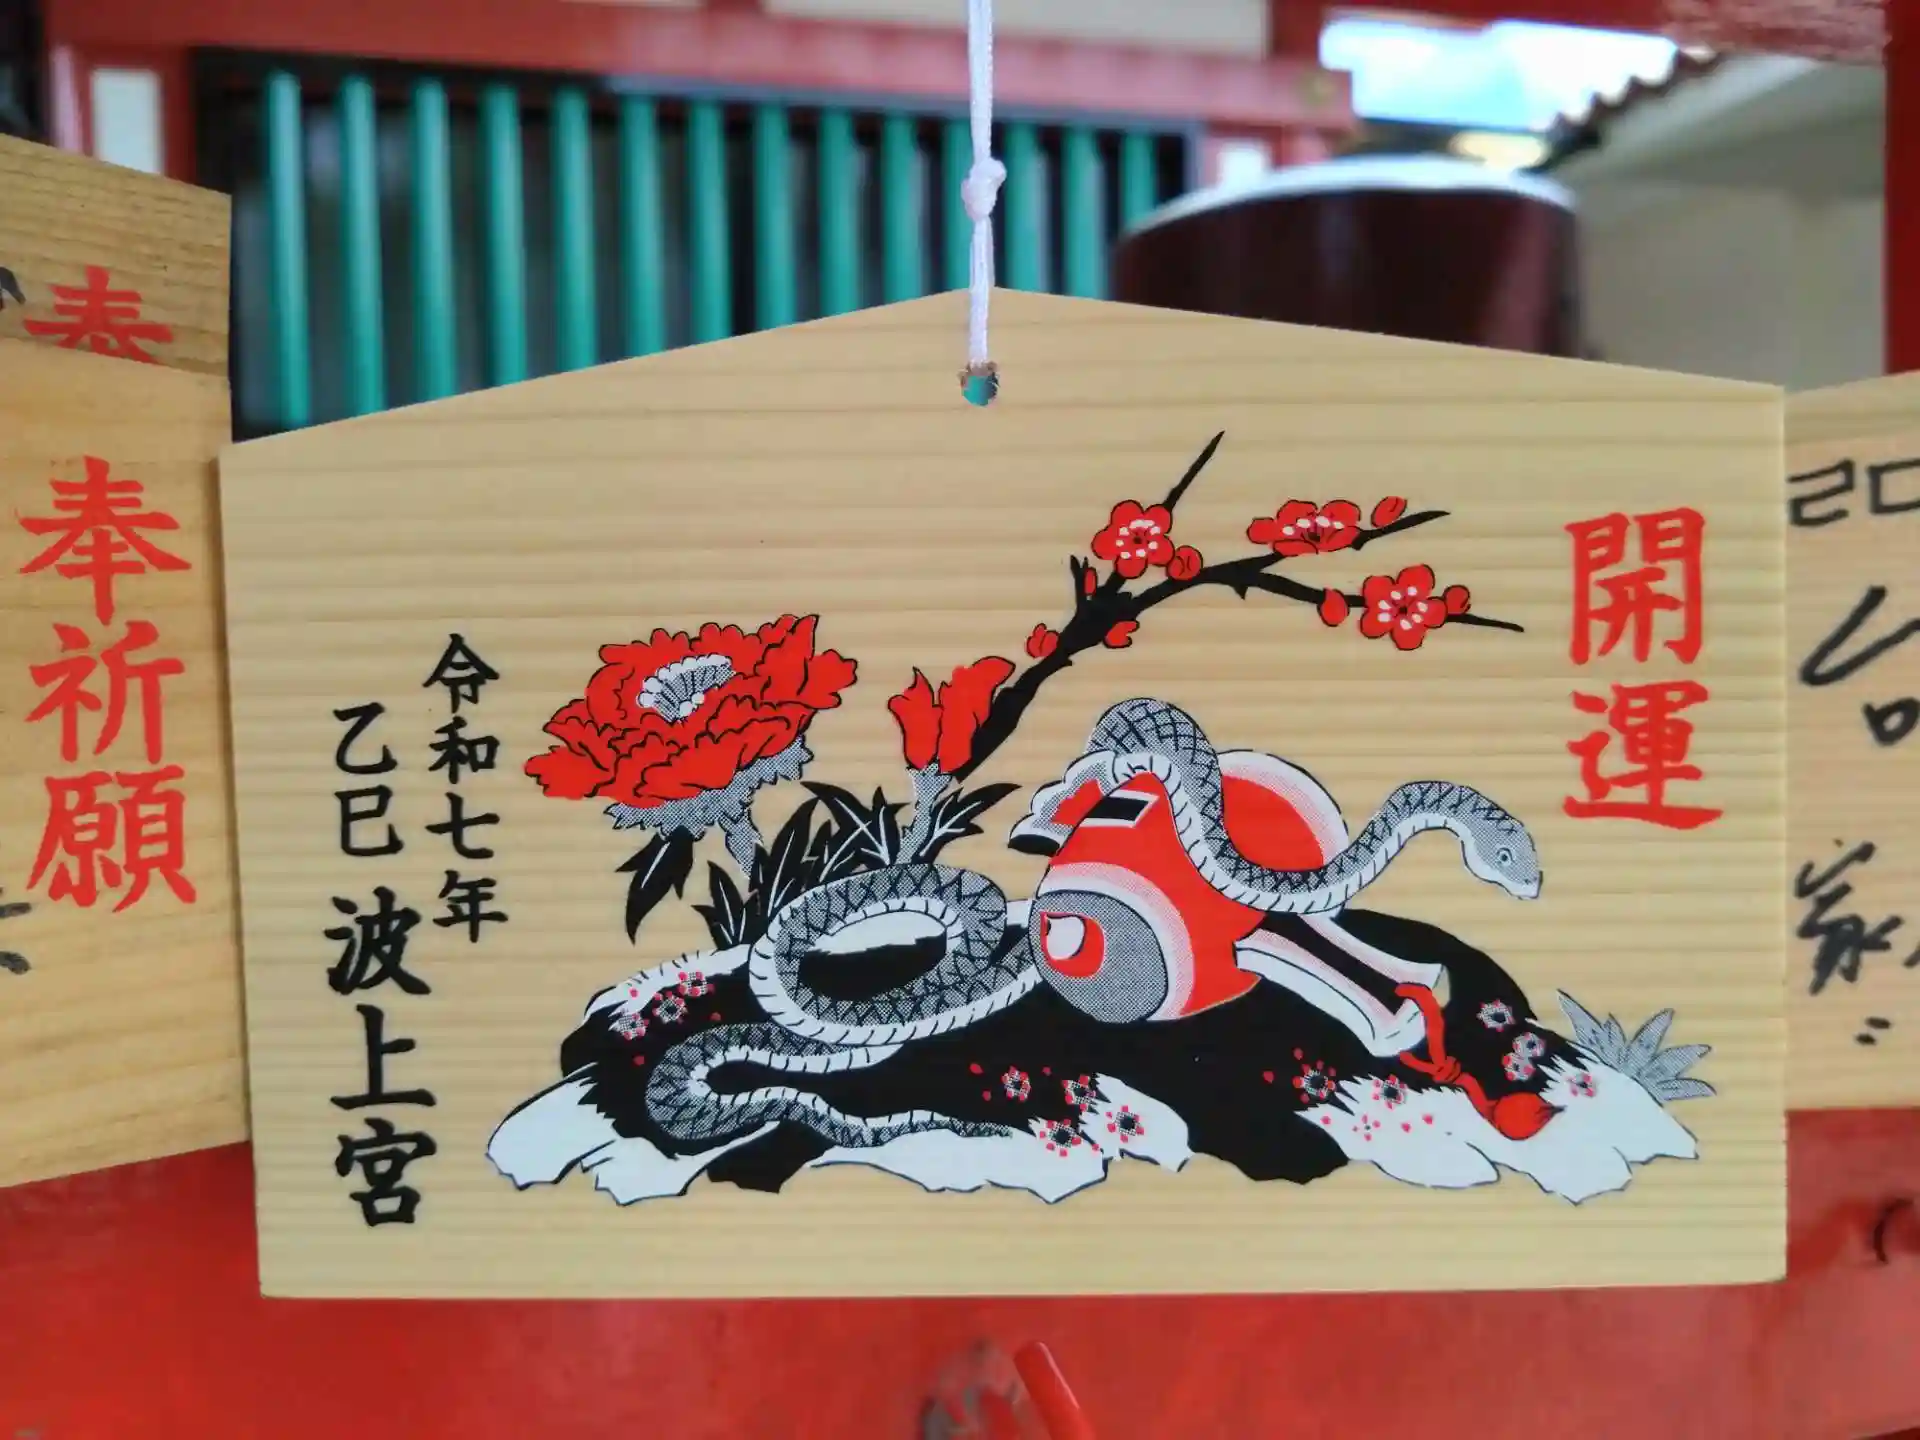 開運
令和七年
乙巳 波上宮
奉祈願
奉